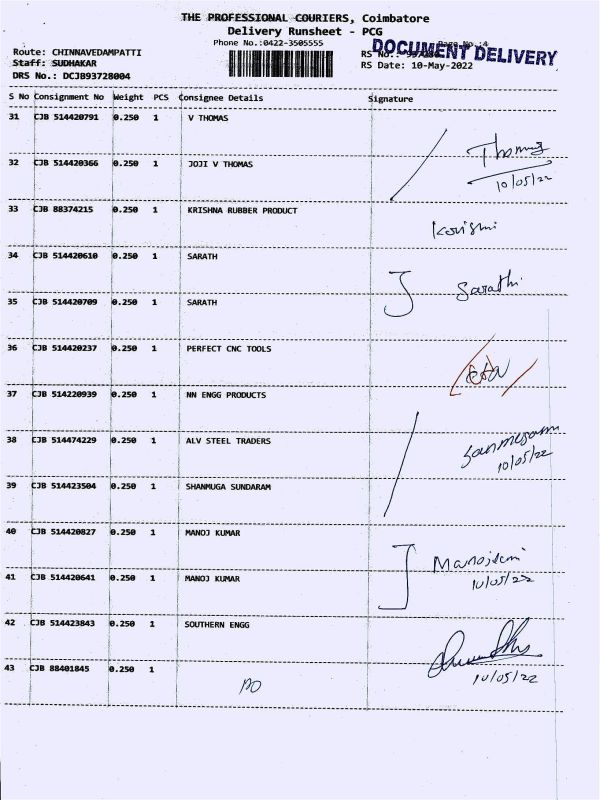 THE PROFESSIONAL COURIERS, Coimbatore
Delivery Runsheet - PCG
Phone No.:0422-3505555
Page No.:4
DOCUMENT DELIVERY
Route: CHINNAVEDAMPATTI
Staff: SUDHAKAR
RS No.:
DRS No.: DCJB93728004
RS Date: 10-May-2022
S No Consignment No Weight PCS Consignee Details Signature
31 CJB 514420791 0.250 1 V THOMAS
Thomas
32 CJB 514420366 0.250 1 JOJI V THOMAS
10/05/22
33 CJB 88374215 0.250 1 KRISHNA RUBBER PRODUCT
34 CJB 514420610 0.250 1 SARATH
Sarathi
35 CJB 514420709 0.250 1 SARATH
36 CJB 514420237 0.250 1 PERFECT CNC TOOLS
37 CJB 514220939 0.250 1 NN ENGG PRODUCTS
38 CJB 514474229 0.250 1 ALV STEEL TRADERS
10/05/22
39 CJB 514423504 0.250 1 SHANMUGA SUNDARAM
40 CJB 514420827 0.250 1 MANOJ KUMAR
41 CJB 514420641 0.250 1 MANOJ KUMAR
10/05/22
42 CJB 514423843 0.250 1 SOUTHERN ENGG
43 CJB 88401845 0.250 1
10/05/22